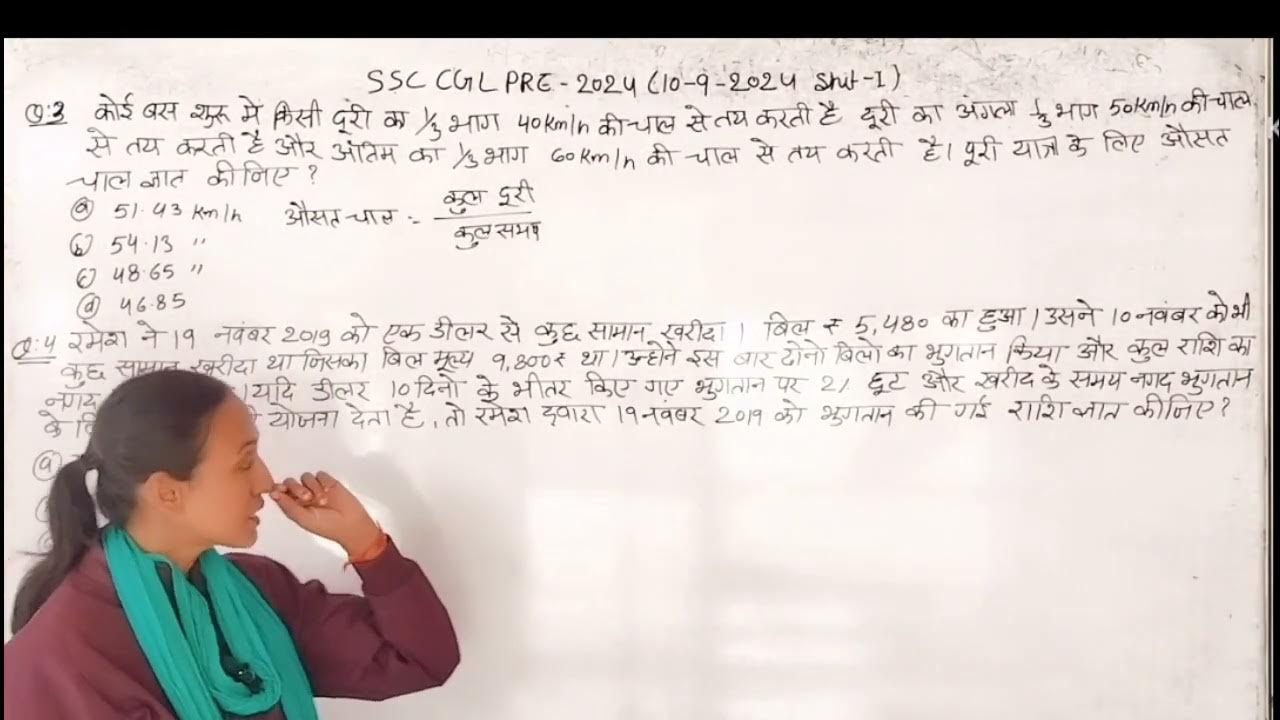 SSC CGL PRE - 2024 (10-9-2024 Shit-I)
Q:3 कोई बस शुरू मे किसी दूरी का 1/3 भाग 40 km/h की चाल से तय करती है दूरी का अगला 1/3 भाग 50km/h की चाल
से तय करती है और अंतिम का 1/3 भाग 60 km/h की चाल से तय करती है। पूरी यात्रा के लिए औसत
चाल ज्ञात कीजिए ?
(a) 51.43 km/h औसत चाल = कुल दूरी / कुल समय
(b) 54.13 "
(c) 48.65 "
(d) 46.85
Q:4 रमेश ने 19 नवंबर 2019 को एक डीलर से कुछ सामान खरीदा। बिल ₹ 5,480 का हुआ। उसने 10 नवंबर को भी
कुछ सामान खरीदा था जिसका बिल मूल्य 9,800₹ था। उन्होने इस बार दोनो बिलो का भुगतान किया और कुल राशि का
नगद । यदि डीलर 10 दिनो के भीतर किए गए भुगतान पर 2% छूट और खरीद के समय नगद भुगतान
के योजना देता है, तो रमेश द्वारा 19 नवंबर 2019 को भुगतान की गई राशि ज्ञात कीजिए ?
(a)